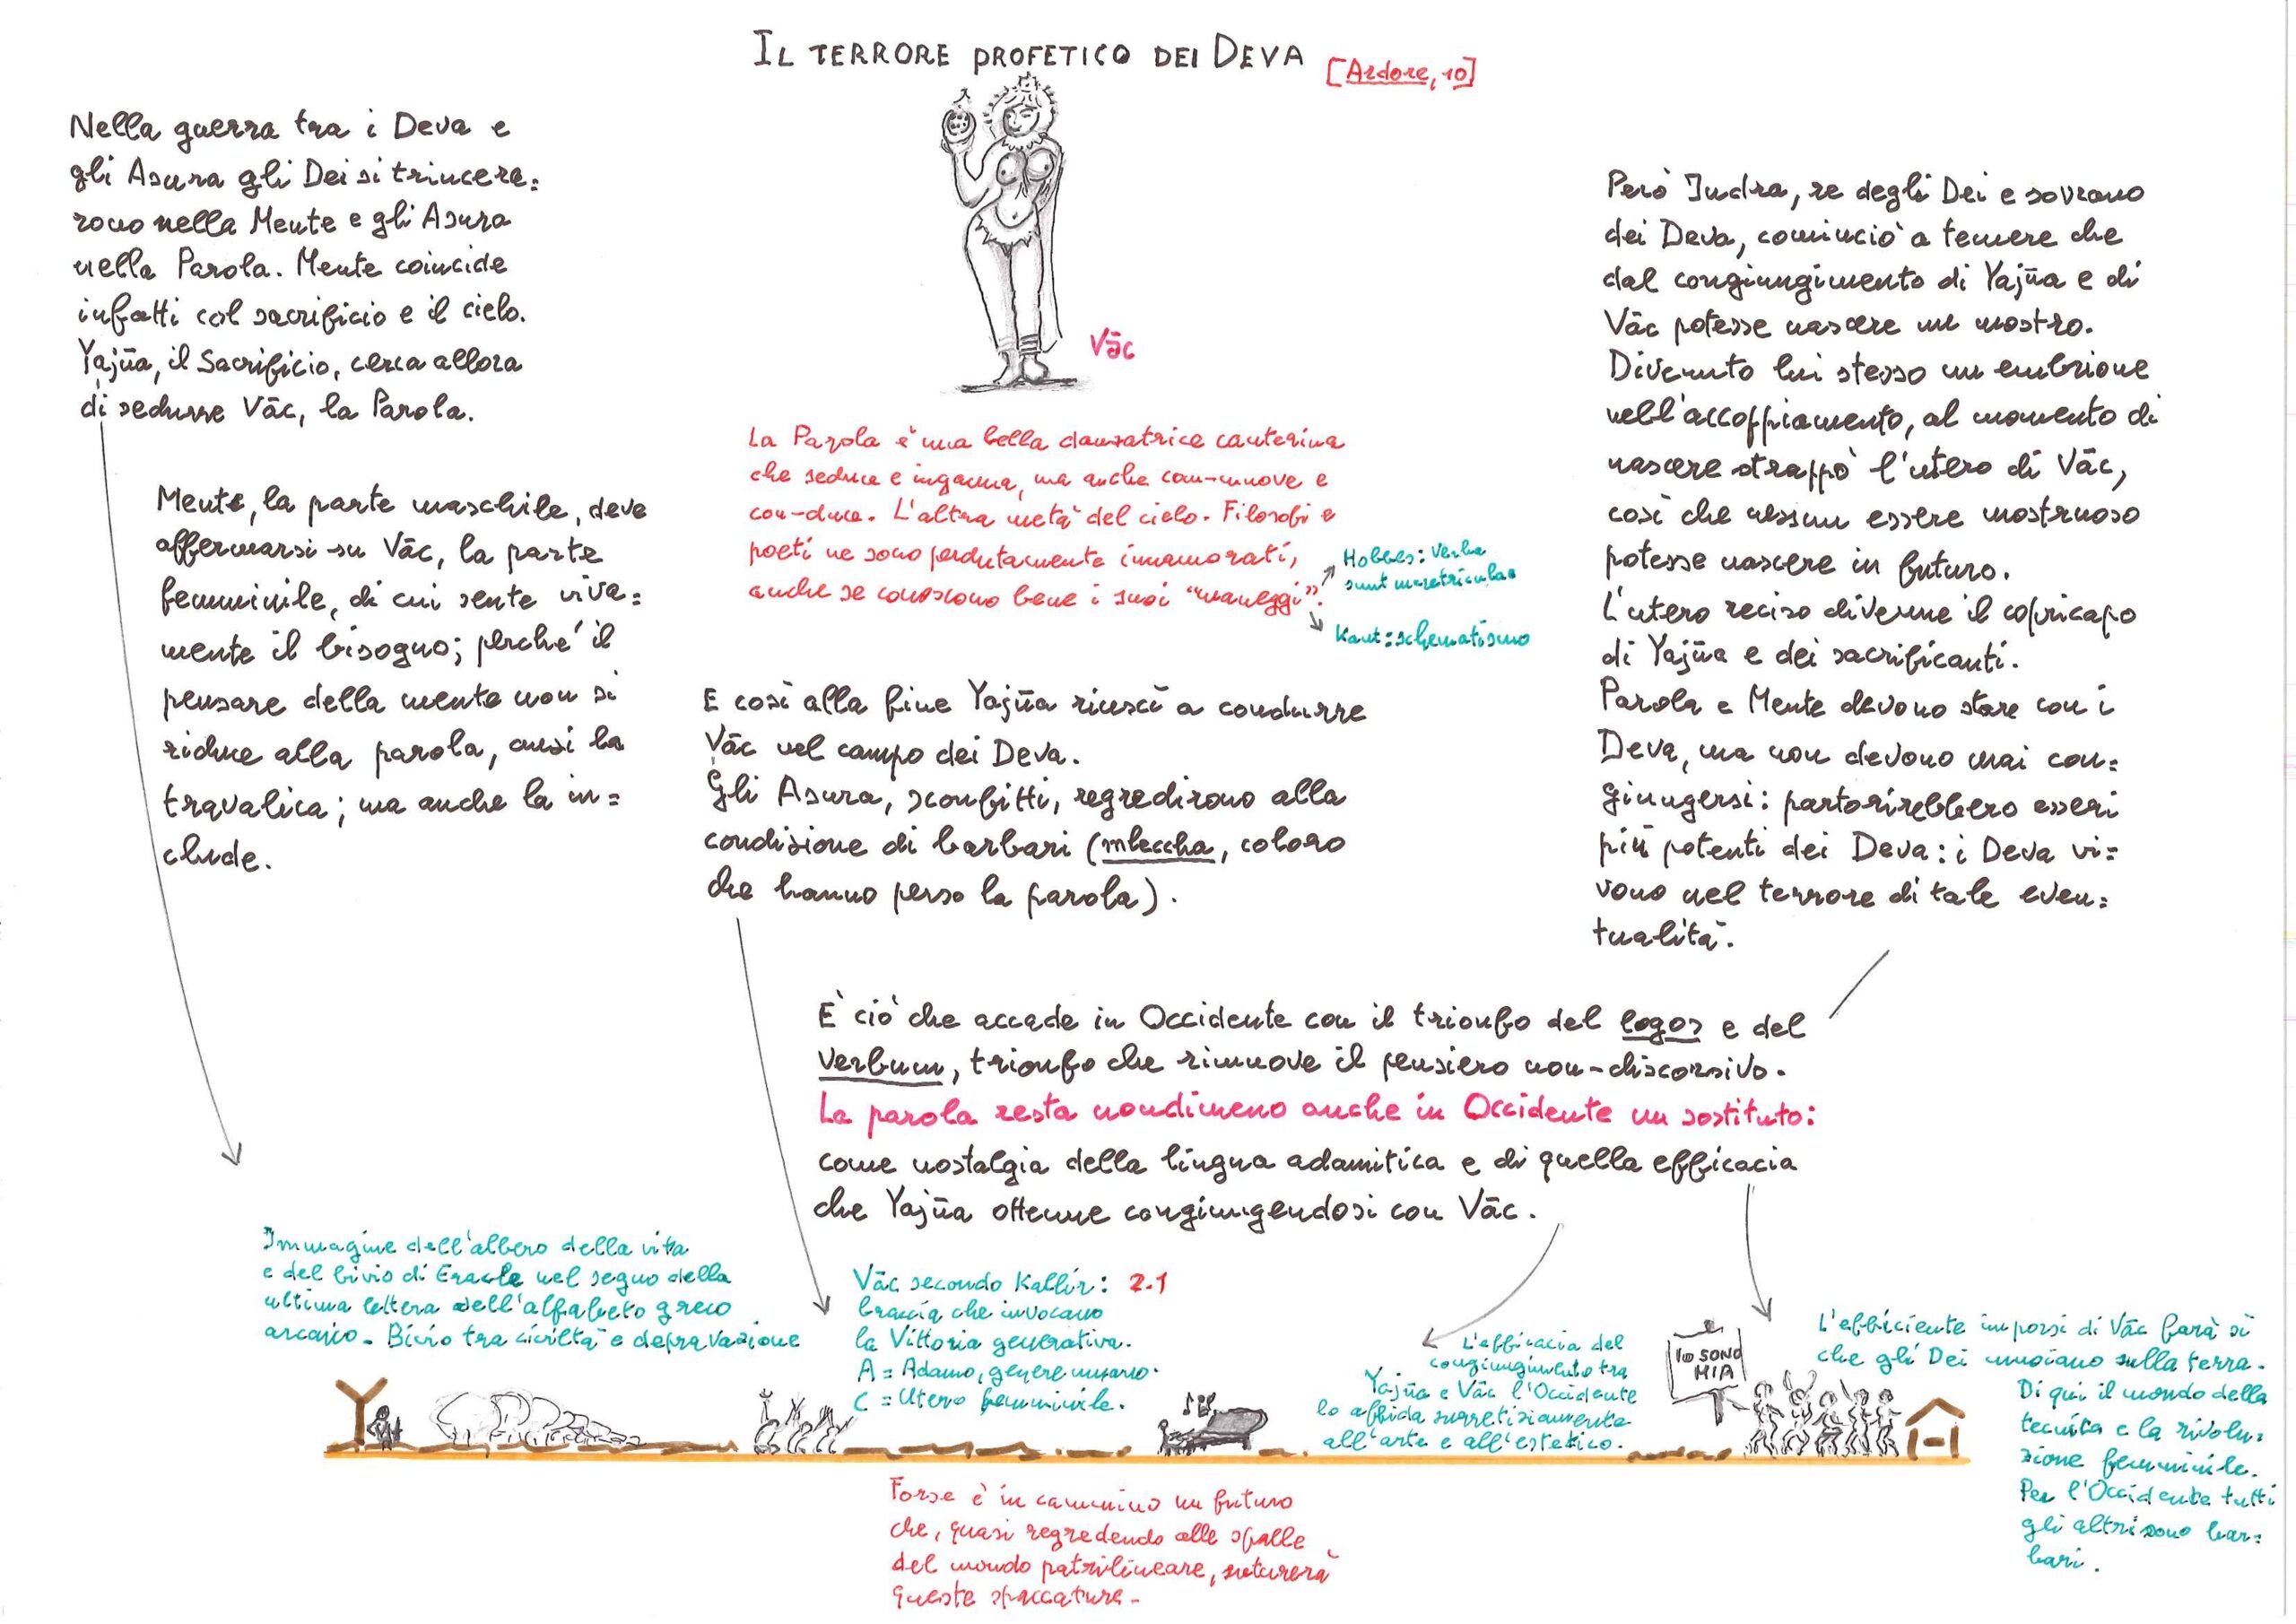 IL TERRORE PROFETICO DEI DEVA [Ardore, 10]
Nella guerra tra i Deva e
gli Asura gli Dei si trincera=
rono nella Mente e gli Asura
nella Parola. Mente coincide
infatti col sacrificio e il cielo.
Yajña, il Sacrificio, cerca allora
di sedurre Vāc, la Parola.
Mente, la parte maschile, deve
affermarsi su Vāc, la parte
femminile, di cui sente viva=
mente il bisogno; perché il
pensare della mente non si
riduce alla parola, anzi la
travalica; ma anche la in=
clude.
Vāc
La Parola è una bella danzatrice canterina
che seduce e inganna, ma anche com-muove e
con-duce. L'altra metà del cielo. Filosofi e
poeti ne sono perdutamente innamorati,
anche se conoscono bene i suoi "maneggi".
Hobbes: Verba
sunt meretriculae
Kant: schematismo
E così alla fine Yajña riuscì a condurre
Vāc nel campo dei Deva.
Gli Asura, sconfitti, regredirono alla
condizione di barbari (mleccha, coloro
che hanno perso la parola).
Però Indra, re degli Dei e sovrano
dei Deva, cominciò a temere che
dal congiungimento di Yajña e di
Vāc potesse nascere un mostro.
Divenuto lui stesso un embrione
nell'accoppiamento, al momento di
nascere strappò l'utero di Vāc,
così che nessun essere mostruoso
potesse nascere in futuro.
L'utero reciso divenne il copricapo
di Yajña e dei sacrificanti.
Parola e Mente devono stare con i
Deva, ma non devono mai con=
giungersi: partorirebbero esseri
più potenti dei Deva: i Deva vi=
vono nel terrore di tale even=
tualità.
È ciò che accade in Occidente con il trionfo del logos e del
Verbum, trionfo che rimuove il pensiero non-discorsivo.
La parola resta nondimeno anche in Occidente un sostituto:
come nostalgia della lingua adamitica e di quella efficacia
che Yajña ottenne congiungendosi con Vāc.
Immagine dell'albero della vita
e del bivio di Eracle nel segno della
ultima lettera dell'alfabeto greco
arcaico. Bivio tra civiltà e depravazione
Vāc secondo Kallir: 2.1
braccia che invocano
la Vittoria generativa.
A = Adamo, genere umano.
C = Utero femminile.
L'efficacia del
congiungimento tra
Yajña e Vāc l'Occidente
lo affida surrettiziamente
all'arte e all'estetico.
IO SONO
MIA
L'efficiente imporsi di Vāc farà sì
che gli Dei muoiano sulla terra.
Di qui il mondo della
tecnica e la rivolu=
zione femminile.
Per l'Occidente tutti
gli altri sono bar=
bari.
Forse è in cammino un futuro
che, quasi regredendo alle spalle
del mondo patrilineare, suturerà
queste spaccature.